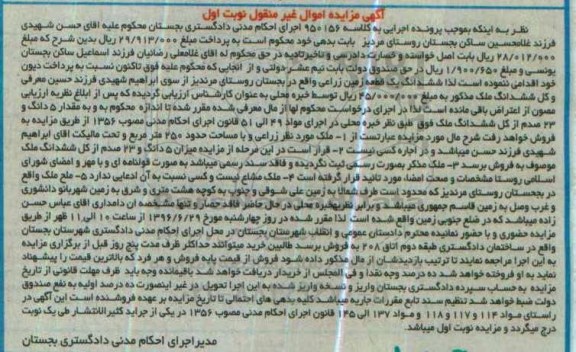 آگهی مزایده اموال غیر منقول نوبت اول
نظر به اینکه بموجب پرونده اجرایی به کلاسه ۹۵۰۱۵۶ اجرای احکام مدنی دادگستری بجستان محکوم علیه اقای حسن شهیدی
فرزند غلامحسین ساکن بجستان روستای مرندیز بابت بدهی خود محکوم است به پرداخت مبلغ ۲۹/۹۱۳/۰۰۰ ریال بدین شرح که مبلغ
۲۸/۰۱۲/۰۰۰ ریال بابت اصل خواسته و خسارت دادرسی و تاخیر تادیه در حق محکوم له اقای غلامعلی رضائیان فرزند اسماعیل ساکن بجستان
یونسی و مبلغ ۱/۹۰۰/۶۵۰ ریال در حق صندوق دولت بابت نیم عشر دولتی و از انجایی که محکوم علیه فوق تاکنون نسبت به پرداخت دیون
خود اقدامی ننموده است لذا ششدانگ یک قطعه زمین زراعی واقع در بجستان روستای مرندیز از سوی ابراهیم شهیدی فرزند حسین معرفی
و کل ششدانگ ملک مذکور به مبلغ ۳۵/۰۰۰/۰۰۰ ریال توسط خبره محلی به عنوان کارشناس ارزیابی گردیده که پس از ابلاغ نظریه ارزیابی
مصون از اعتراض باقی مانده است لذا در اجرای درخواست محکوم لها از مال معرفی شده مقرر شده تا اندازه محکوم به و به مقدار ۵ دانگ و
۲۳ صدم از کل ششدانگ ملک فوق طبق نظر خبره محلی در اجرای مواد ۴۹ الی ۵۱ قانون اجرای احکام مدنی مصوب ۱۳۵۶ از طریق مزایده به
فروش خواهد رفت شرح مال مورد مزایده عبارتست از ۱- ملک مورد نظر زراعی و با مساحت حدود ۲۵۰ متر مربع و تحت مالکیت اقای ابراهیم
شهیدی فرزند حسن میباشد و در اجاره کسی نیست ۲- قرار است در این مرحله از مزایده میزان ۵ دانگ و ۲۳ صدم از کل ششدانگ ملک
موصوف به فروش برسد ۳- ملک مذکر بصورت رسمی ثبت نگردیده و فاقد سند رسمی میباشد به صورت قولنامه ای و با مهر و امضای شورای
اسلامی روستا مشخصات و صحت امضاء مورد تائید قرار گرفته است ۴- ملک مشاع نیست و کسی نسبت به آن ادعایی ندارد ۵- ملک واقع
در بجستان روستای مرندیز که محدود است طرف شمالا به زمین علی شوقی و جنوب به کوچه هشت متری و شرق به زمین شهربانو دانشوری
و غرب وصل به زمین قاسم جمهوری میباشد و برابر نظریه خبره محلی در حال حاضر فاقد حصار و تنها مشخصه ان دامداری اقای عباس حسن
زاده میباشد که در ضلع جنوبی زمین واقع شده است لذا مقرر شده در روز چهارشنبه مورخ ۱۳۹۶/۶/۲۹ از ساعت ۱۰ الی ۱۱ ظهر از طریق
مزایده حضوری و با حضور نماینده محترم دادستان عمومی و انقلاب شهرستان بجستان در محل اجرای احکام مدنی دادگستری شهرستان بجستان
واقع در ساختمان دادگستری طبقه دوم اتاق ۲۰۸ به فروش برسد طالبین خرید میتوانند حداکثر ظرف مدت پنج روز قبل از برگزاری مزایده
به این اجرا مراجعه نمایند تا ترتیب بازدیدشان از مال مذکور داده شود فروش از قیمت پایه فروش و هر فرد که بالاترین قیمت را پیشنهاد
نماید به او فروخته خواهد شد ده درصد وجه نقدا و فی المجلس از خریدار دریافت خواهد شد باقیمانده وجه باید ظرف مهلت قانونی از تاریخ
مزایده به حساب سپرده دادگستری بجستان واریز و نسخه واریز شده به این اجرا تحویل در غیر اینصورت ده درصد اولیه به نفع صندوق
دولت ضبط خواهد شد تنظیم سند تابع مقررات جاریه میباشد کلیه بدهی های احتمالی تا تاریخ مزایده بر عهده فروشنده است این آگهی در
راستای مواد ۱۱۴ و ۱۱۷ و ۱۱۸ و مواد ۱۳۷ الی ۱۴۵ قانون اجرای احکام مدنی مصوب ۱۳۵۶ در یکی از جراید کثیرالانتشار طی یک نوبت
درج میگردد و مزایده نوبت اول میباشد.
مدیر اجرای احکام مدنی دادگستری بجستان